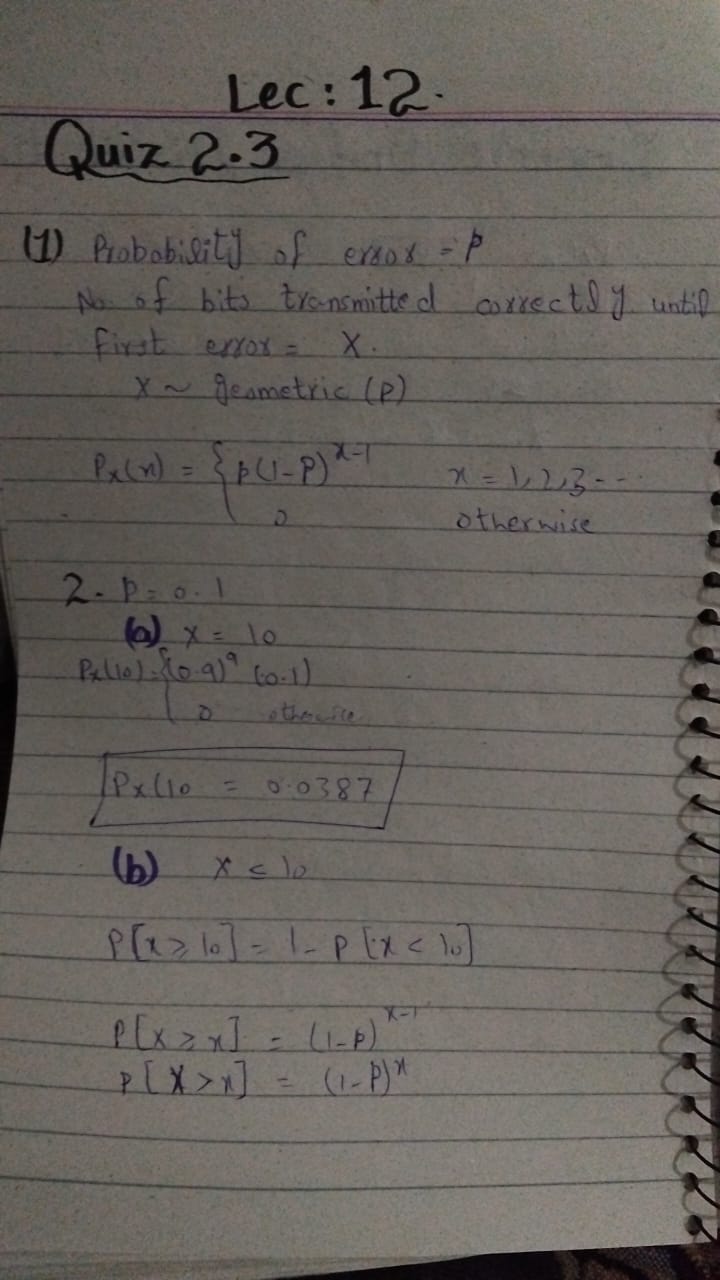 Lec: 12.
Quiz 2.3
(1) Probability of error = p
No. of bits transmitted correctly until
first error = X.
X ~ geometric (p)
Px(x) = { p(1-P)^x-1   x = 1,2,3---
0   otherwise
2. P = 0.1
(a) x = 10
Px(10) = { (0.9)^9 (0.1)
0   otherwise
Px(10 = 0.0387
(b) x ≤ 10
P[x ≥ 10] = 1 - P[x < 10]
P[X ≥ x] = (1-p)^x-1
P[X > x] = (1-P)^x